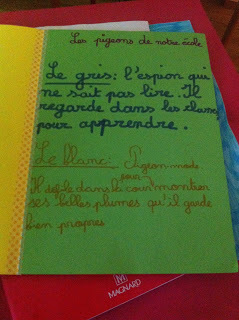 Les pigeons de notre école
Le gris: l'espion qui
ne sait pas lire. Il
regarde dans les classes
pour apprendre.
Le blanc: Pigeon-mode.
Il défile dans la cour pour montrer
ses belles plumes qu'il garde
bien propres
M
MAGNARD